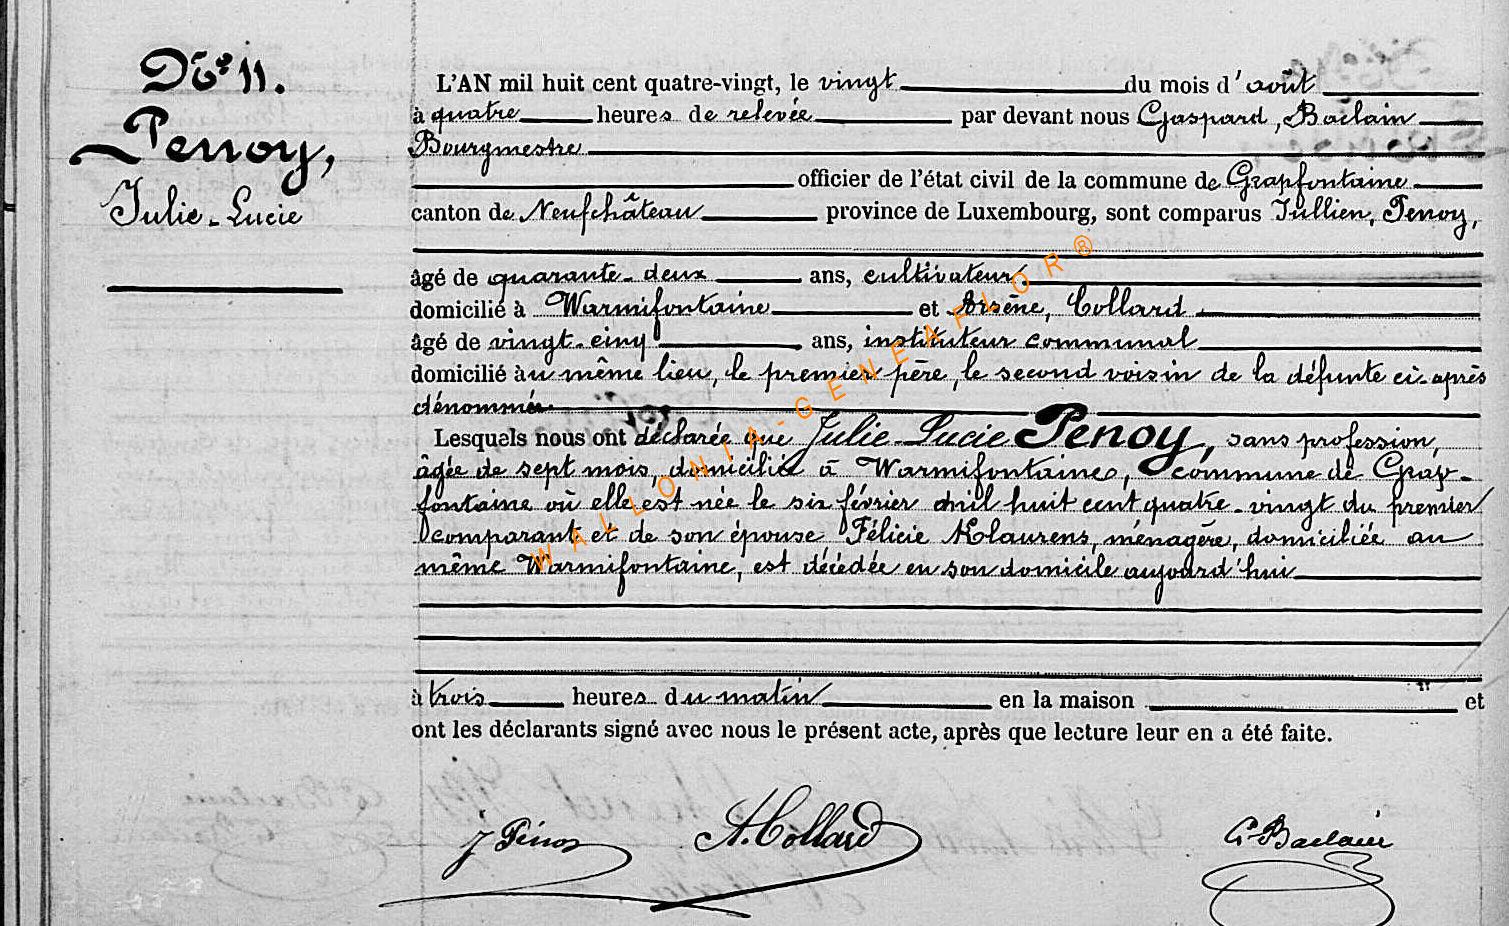 No 11.
Penoy,
Julie-Lucie
L'AN mil huit cent quatre-vingt, le vingt du mois d'août
à quatre heures de relevée par devant nous Gaspard, Baclain
Bourgmestre
officier de l'état civil de la commune de Grapfontaine
canton de Neufchâteau province de Luxembourg, sont comparus Jullien, Penoy,
âgé de quarante-deux ans, cultivateur,
domicilié à Warmifontaine et Arsène, Collard
âgé de vingt-cinq ans, instituteur communal
domicilié au même lieu, le premier père, le second voisin de la défunte ci-après
dénommée.
Lesquels nous ont déclarée que Julie-Lucie Penoy, sans profession,
âgée de sept mois, domiciliée à Warmifontaine, commune de Grap-
fontaine où elle est née le six février mil huit cent quatre-vingt du premier
comparant et de son épouse Félicie Klaurens, ménagère, domiciliée au
même Warmifontaine, est décédée en son domicile aujourd'hui
à trois heures du matin en la maison et
ont les déclarants signé avec nous le présent acte, après que lecture leur en a été faite.
J Pénoy A. Collard G. Baclain
WALLONIA-GENEAFLOR®